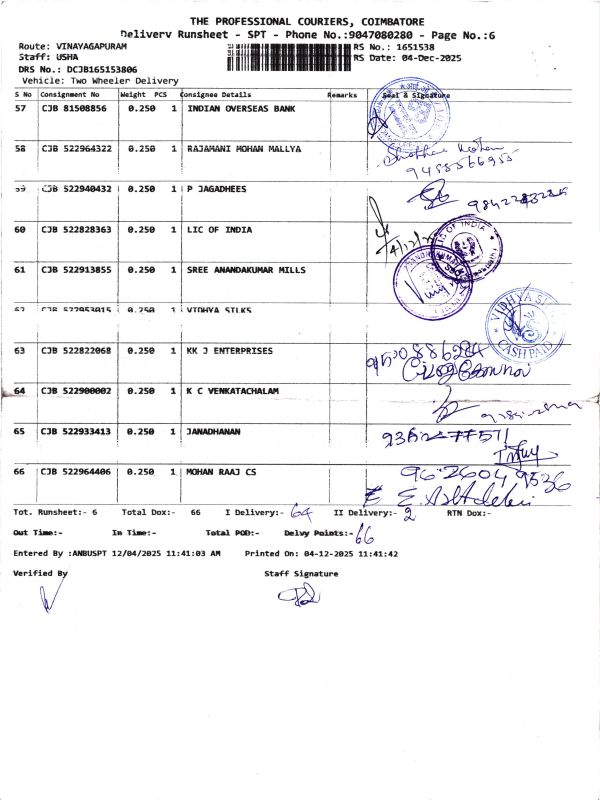 THE PROFESSIONAL COURIERS, COIMBATORE
Delivery Runsheet - SPT - Phone No.:9047080280 - Page No.:6
Route: VINAYAGAPURAM
RS No.: 1651538
Staff: USHA
RS Date: 04-Dec-2025
DRS No.: DCJB165153806
Vehicle: Two Wheeler Delivery
S No Consignment No Weight PCS Consignee Details Remarks Seal & Signature
57 CJB 81508856 0.250 1 INDIAN OVERSEAS BANK
58 CJB 522964322 0.250 1 RAJAMANI MOHAN MALLYA
9488566955
59 CJB 522940432 0.250 1 P JAGADHEES
60 CJB 522828363 0.250 1 LIC OF INDIA
LIC OF INDIA
61 CJB 522913855 0.250 1 SREE ANANDAKUMAR MILLS
62 CJB 522953015 0.250 1 VIDHYA SILKS
VIDHYA SILKS
CASH PAID
63 CJB 522822068 0.250 1 KK J ENTERPRISES
64 CJB 522900002 0.250 1 K C VENKATACHALAM
65 CJB 522933413 0.250 1 JANADHANAN
66 CJB 522964406 0.250 1 MOHAN RAAJ CS
Tot. Runsheet:- 6 Total Dox:- 66 I Delivery:- 64 II Delivery:- 2 RTN Dox:-
Out Time:- In Time:- Total POD:- Delvy Points:- 66
Entered By :ANBUSPT 12/04/2025 11:41:03 AM Printed On: 04-12-2025 11:41:42
Verified By Staff Signature